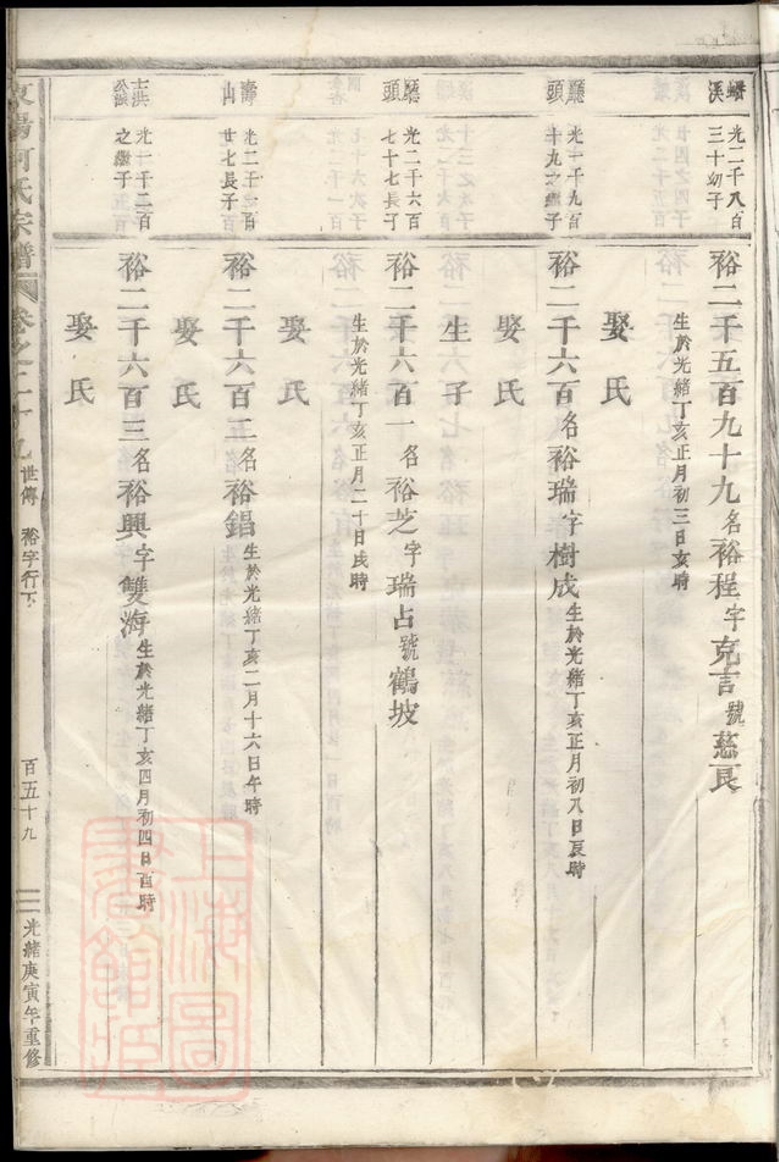 蟠溪
光二千八百三十幼子
裕二千五百九十九名裕程字克言號慈良
生於光緒丁亥正月初三日亥時
娶氏
廳頭
光一千九百十九之繼子
裕二千六百名裕瑞字樹成生於光緒丁亥正月初八日辰時
娶氏
生子
廳頭
光二千六百七十七長子
裕二千六百一名裕芝字瑞占號鶴坡
生於光緒丁亥正月二十日戌時
娶氏
壽山
光二千一百廿七長子
裕二千六百二名裕錩生於光緒丁亥二月十六日午時
娶氏
光一千二百之繼子
裕二千六百三名裕興字雙海生於光緒丁亥四月初四日酉時
娶氏
東陽何氏宗譜 卷之二十九 世傳 裕字行下 百五十九 光緒庚寅年重修
上海圖書館藏